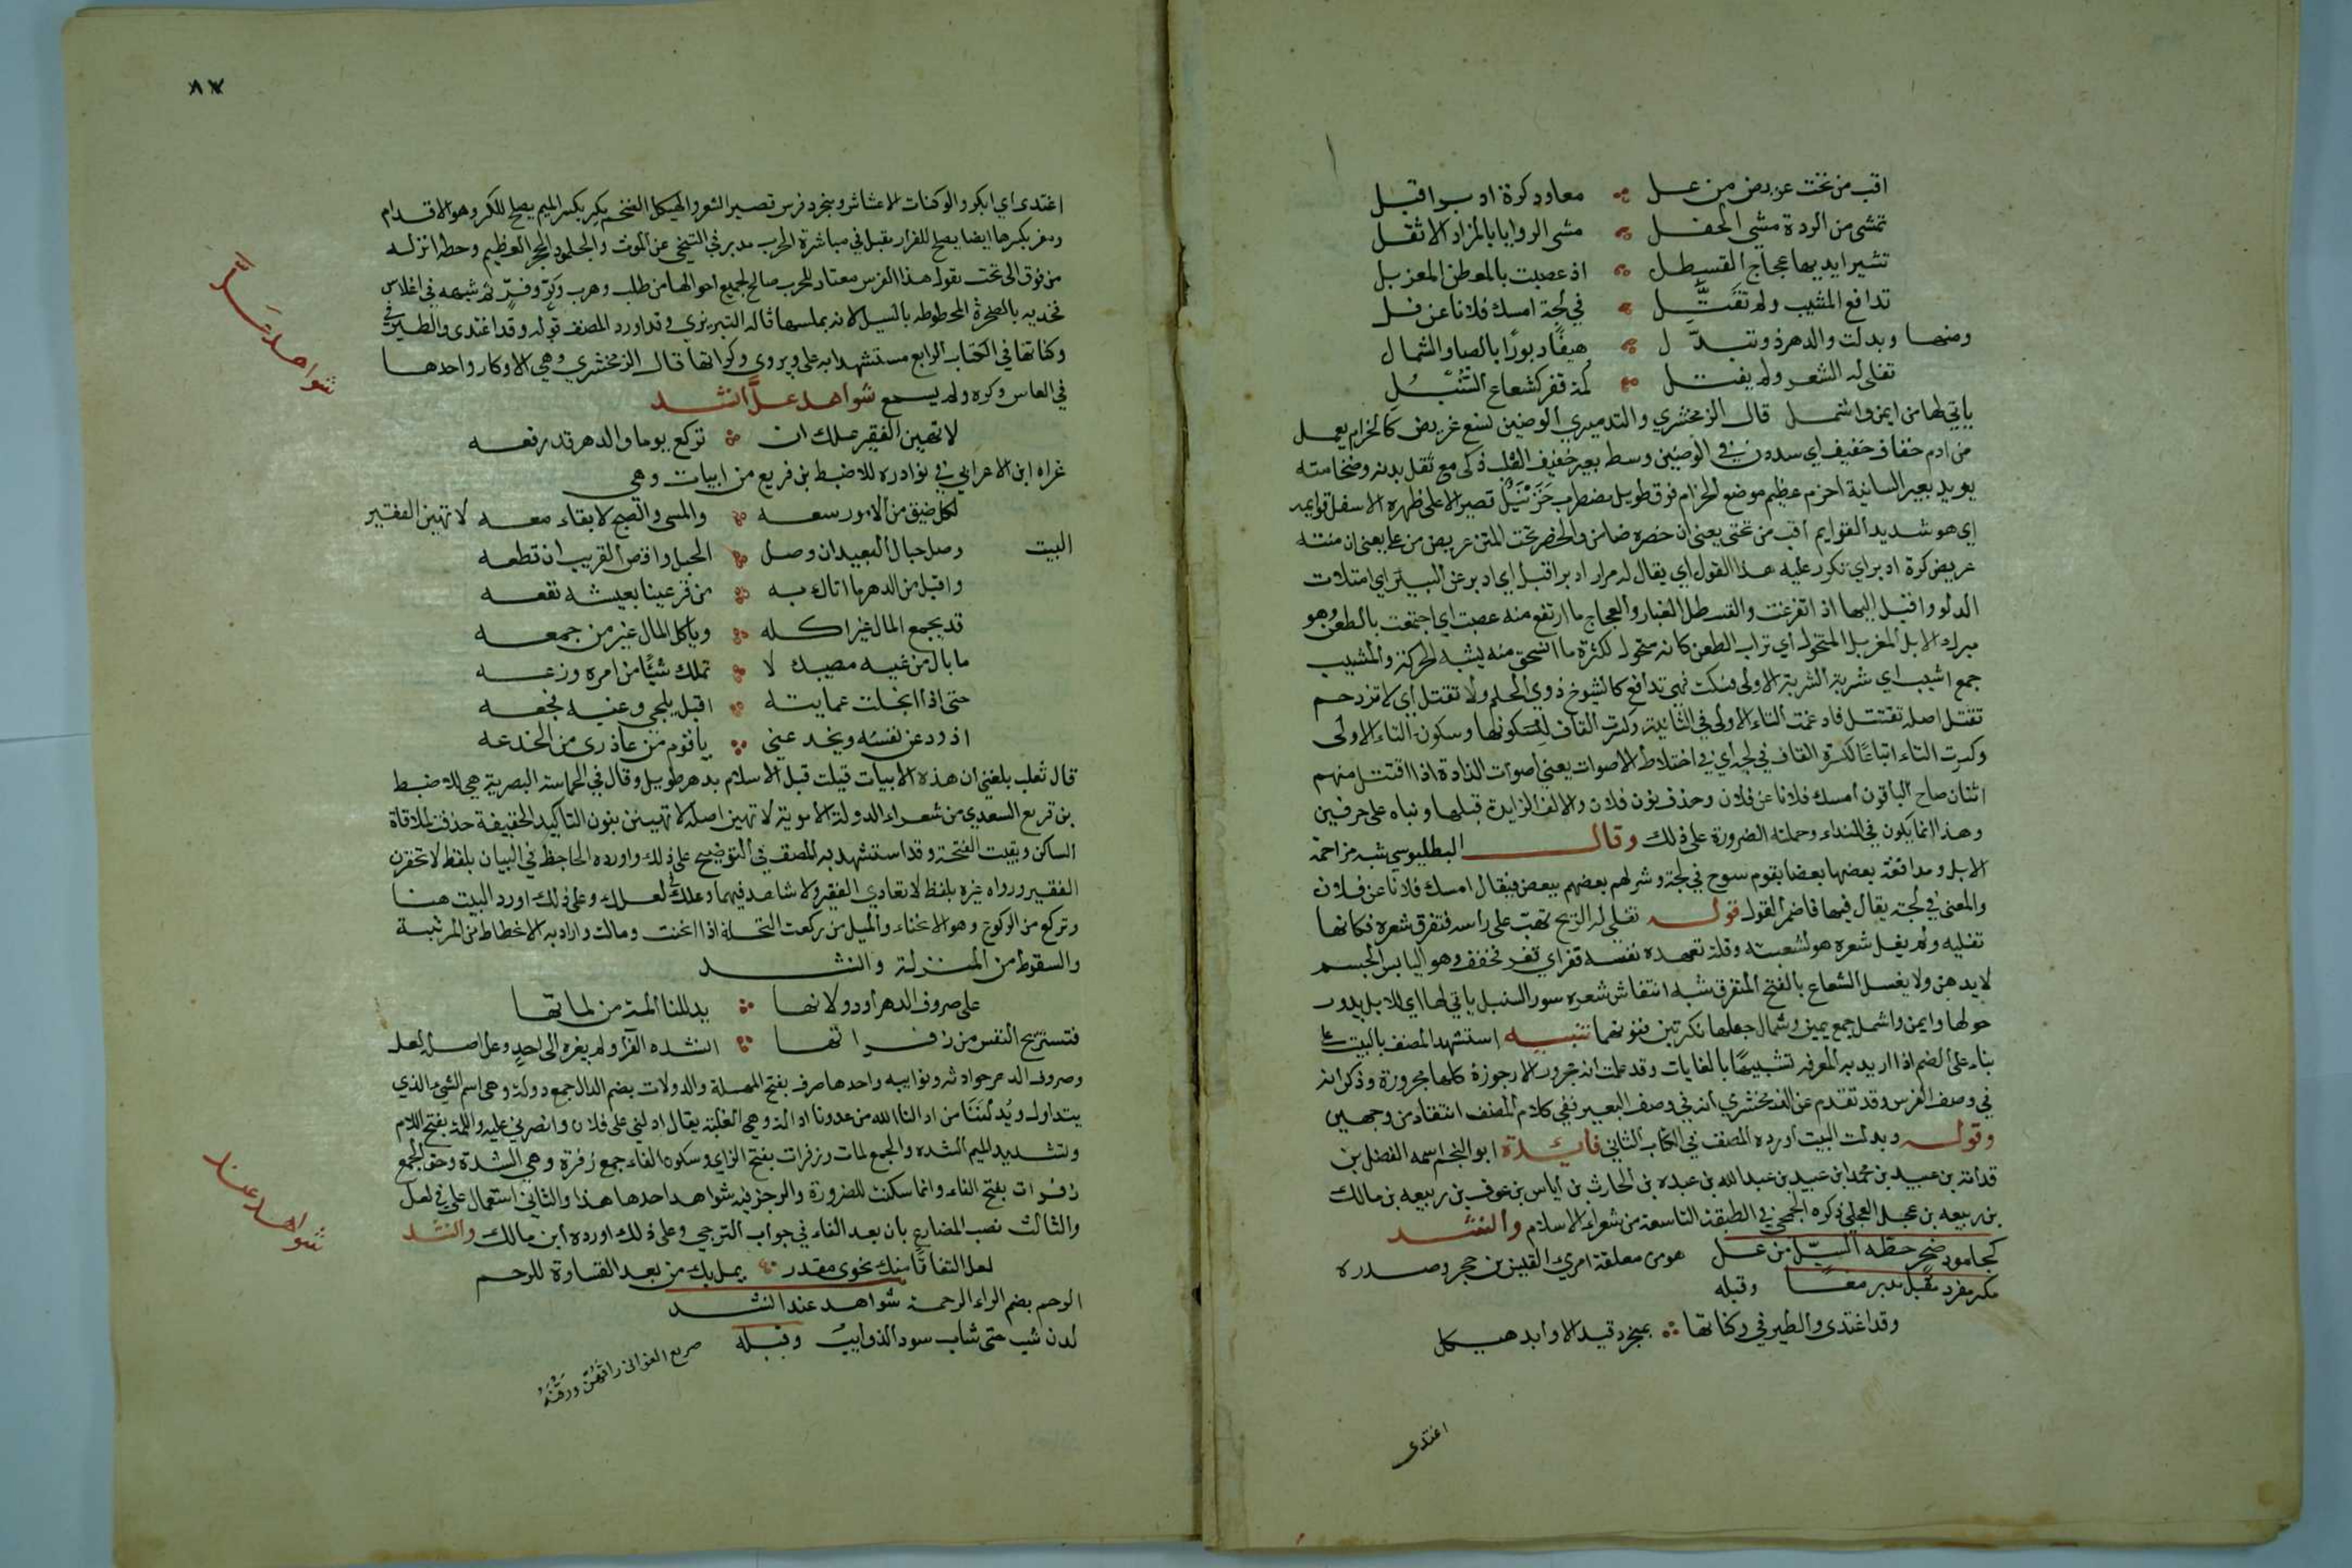 اقب من تحت عريض من عل ∴ معاود كرة ادبر اقبل
تمشى من الردة مشى الحفل ∴ مشى الروايا بالمزاد الاثقل
تثير ايديها عجاج القسطل ∴ اذ عصبت بالعطن المغربل
تدافع الشيب ولم تقتل ∴ في لجة امسك فلانا عن فل
ومنها وبدلت والدهر ذو تبدل ∴ هيفا دبورا بالصبا والشمال
تفلى له الشعر ولم يفتل ∴ لمة قفر كشعاع السنبل
ياتي لها من ايمن واشمل قال الزمخشري والتدميري الوضين نسع عريض كالحزام يعمل
من ادم خفاف خفيف اي سدون في الوضين وسط بعير خفيف القلب ذكى مع ثقل بدنه وضخامته
يريد بعير السانية احزم عظيم موضع الحزام فوق طويل مضطرب قصير الاعلى ظهره الاسفل قوايمه
اي هو شديد القوايم اقب من تحتى يعنى ان خصره ضامر والخصر تحت المتن عريض من عل يعنى ان متنه
عريض كرة ادبر اي تكرر عليه هذا القول اي يقال له مرار ادبر اقبل اي ادبر عن البير اي امتلات
الدلو واقبل اليها اذ اتفرغت والقسطل الغبار والعجاج ما ارتفع منه عصبت اي اجتمعت بالعطن وهو
مبرك الابل المغربل المنخول اي تراب العطن كانه منخول لكثرة ما انسحق منه يشبه الحركة والشيب
جمع اشيب اي شربت الشربة الاولى فسكت فهي تدافع كالشيوخ ذوي الحلم ولا تقتل اي لا تزدحم
تقتل اصله تقتتل فادغمت التاء الاولى في الثانية وكسرت القاف لسكونها وسكون التاء الاولى
وكسرت التاء اتباعا لكسرة القاف في لجة اي في اختلاط الاصوات يعني اصوات الذادة اذا اقتتل منهم
اثنان صاح الباقون امسك فلانا عن فلان وحذف نون فلان والالف الزايدة قبلها وبناه على حرفين
وهذا انما يكون في النداء وحملته الضرورة على ذلك وقال البطليوسي شبه مزاحمة
الابل ومدافعة بعضها بعضا بقوم سوح في لجة وشر لهم بعضهم ببعض فيقال امسك فلانا عن فلان
والمعنى في لجة يقال فيها فاضمر القول قوله تفلى له الريح تهب على راسه فتفرق شعره فكانها
تفليه ولم يفل شعره هو لشعبته وقلة تعهده نفسه قفر اي قفر فخفف وهو اليابس الجسم
لا يدهن ولا يغسل الشعاع بالفتح المتفرق شبه انتفاش شعره سور السنبل ياتي لها اي للابل يدور
حولها وايمن واشمل جمع يمين وشمال جعلها نكرتين فنونهما تنبيه استشهد المصنف بالبيت على
بناء عل على الضم اذا اريد به المعرفة تشبيها بالغايات وقد علمت انه مجرور الارجوزة كلها مجرورة وذكر انه
في وصف الفرس وقد تقدم عن الزمخشري انه في وصف البعير ففي كلام المصنف انتقاد من وجهين
وقوله وبدلت البيت اورده المصنف في الكتاب الثاني فايدة ابو النجم اسمه الفضل بن
قدامة بن عبيد بن محمد ابن عبيد بن عبد الله بن عبده بن الحارث بن اياس بن عوف بن ربيعه بن مالك
بن ربيعه بن عجل العجلي ذكره الجمحي في الطبقة التاسعة من شعراء الاسلام وانشد
كجلمود صخر حطه السيل من عل هو من معلقة امرئ القيس بن حجر وصدره
مكر مفر مقبل مدبر معا وقبله
وقد اغتدى والطير في وكناتها ∴ بمنجرد قيد الاوابد هيكل
اغتدى
٨٧
اغتدى اي ابكر والوكنات الاعشاش ومنجرد فرس قصير الشعر والهيكل الضخم مكر بكسر الميم يصلح للكر وهو الاقدام
ومفر بكسرها ايضا يصلح للفرار مقبل في مباشرة الحرب مدبر في التنحي عن الموت والجلمود الحجر العظيم وحطه انزله
من فوق الى تحت يقول هذا الفرس معتاد للحرب صالح لجميع احوالها من طلب وهرب وكر وفر ثم شبهه في اغلاس
فخذيه بالصخرة المحطوطه بالسيل لانه يملسها قاله التبريزي وقد اورد المصنف قوله وقد اغتدى والطير في
وكناتها في الكتاب الرابع مستشهدا به على ويروى وكراتها قال الزمخشري وهي الاوكار واحدها
في العاس وكره ولم يسمع شواهد عل انشد
شواهد عل
لا تهين الفقير علك ان ∴ تركع يوما والدهر قد رفعه
عزاه ابن الاعرابي في نوادره للاضبط بن قريع من ابيات وهي
لكل ضيق من الامور سعه ∴ والمسى والصبح لا بقاء معه لا تهين الفقير
البيت وصل حبال البعيد ان وصل ∴ الحبل واقص القريب ان قطعه
واقبل من الدهر ما اتاك به ∴ من قر عينا بعيشه نفعه
قد يجمع المال غير اكله ∴ وياكل المال غير من جمعه
ما بال من غيه مصيبك لا ∴ تملك شيئا من امره وزعه
حتى اذا انجلت عمايته ∴ اقبل يلحى وغيه فجعه
اذود عن نفسه ويخدعني ∴ يا قوم من عاذرى من الخدعه
قال ثعلب بلغني ان هذه الابيات قيلت قبل الاسلام بدهر طويل وقال في الحماسة البصرية هي للاضبط
بن قريع السعدي من شعراء الدولة الاموية لا تهين اصله لا تهينن بنون التاكيد الخفيفة حذفت لملاقاة
الساكن وبقيت الفتحة وقد استشهد به المصنف في التوضيح على ذلك واورده الجاحظ في البيان بلفظ لا تحقرن
الفقير ورواه غيره بلفظ لا تعادي الفقير ولا شاهد فيهما وعلك لغة في لعلك وعلى ذلك اورد البيت هنا
وتركع من الركوع وهو الانحناء والميل من ركعت النخلة اذا انحنت ومالت واراد به الانحطاط من المرتبة
والسقوط من المنزلة وانشد
على صروف الدهر او دولاتها ∴ يدلننا اللمة من لماتها
فتستريح النفس من زفراتها ∴ انشده الفرا ولم يعزه الى احد وعل اصل لعل
وصروف الدهر حوادثه ونوايبه واحدها صرف بفتح المهملة والدولات بضم الدال جمع دولة وهي اسم الشيء الذي
يتداول ويدلننا من ادالنا الله من عدونا ادالة وهي الغلبة يقال ادلني على فلان وانصرني عليه واللمة بفتح اللام
وتشديد الميم الشدة والجمع لمات وزفرات بفتح الزاي وسكون الفاء جمع زفرة وهي الشدة وحق الجمع
زفرات بفتح الفاء وانما سكنت للضرورة والرجز فيه شواهد احدها هذا والثاني استعمال عل في لعل
والثالث نصب المضارع بان بعد الفاء في جواب الترجي وعلى ذلك اورده ابن مالك وانشد
لعل التفاتا منك نحوى مقدر ∴ يمل بك من بعد القساوة للرحم
الرحم بضم الراء الرحمة شواهد عند انشد
شواهد عند
لدن شب حتى شاب سود الذوايب وقبله صريع الغواني راقهن ورقنه